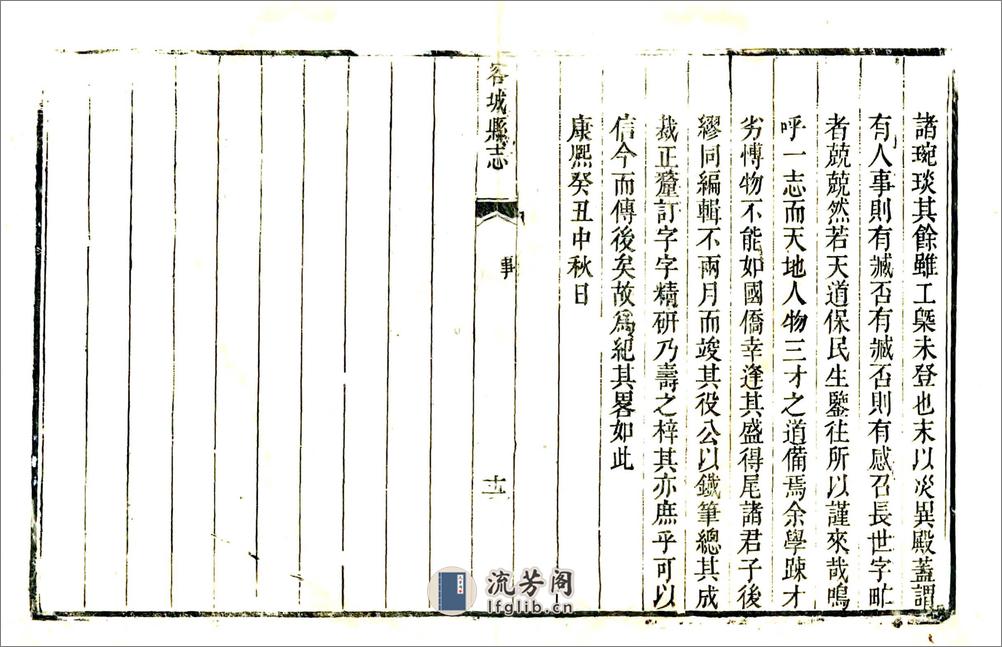 諸琬琰其餘雖工槩未登也末以災異殿蓋謂
有人事則有臧否有臧否則有感召長世字甿
者兢兢然若天道保民生鑒往所以謹來哉嗚
呼一志而天地人物三才之道備焉余學踈才
劣愽物不能如國僑幸逢其盛得尾諸君子後
繆同編輯不兩月而竣其役公以鐵筆總其成
裁正釐訂字字精研乃壽之梓其亦庶乎可以
信今而傳後矣故爲紀其畧如此
康熙癸丑中秋日
容城縣志
十二
流芳阁
lfglib.cn